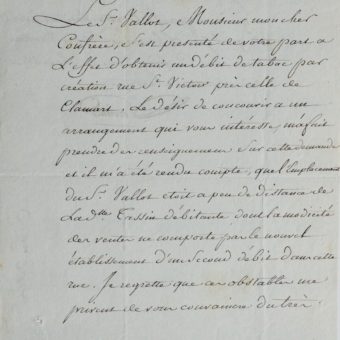 Le Sr. Vallot, Monsieur mon cher
Confrère, s'est présenté de votre part à
l'effet d'obtenir un débit de tabac par
création rue St. Victor près celle de
Clamart. Le désir de concourir à un
arrangement qui vous intéresse, m'a fait
prendre des renseignemens sur cette demande
et il m'a été rendu compte, que l'Emplacement
du Sr. Vallot etoit a peu de distance de
La dlle Tassin débitante dont la modicité
des ventes ne comporte pas le nouvel
établissement d'un second débit dans cette
rue. Je regrette que ces obstacles me
privent de vous convaincre du très